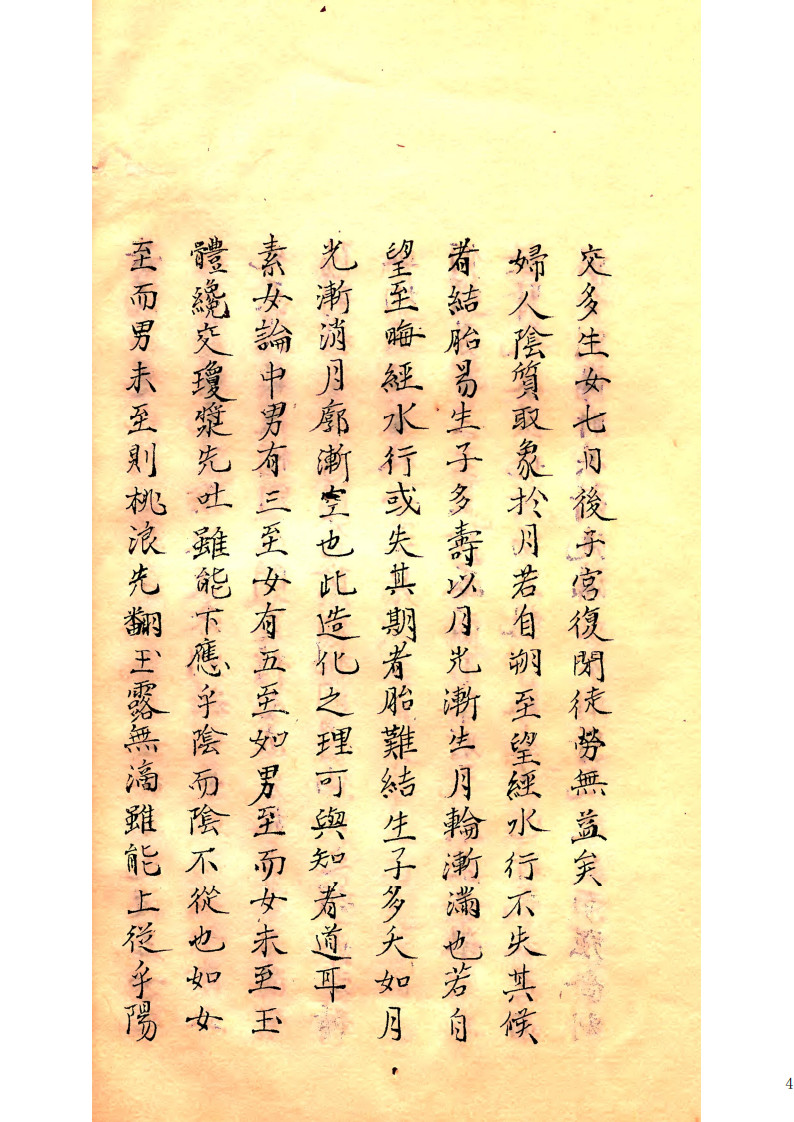 交多生女七日後子宮復閉徒勞無益矣
婦人陰質取象於月若自朔至望經水行不失其候
者結胎易生子多壽以月光漸生月輪漸滿也若自
望至晦經水行或失其期者胎難結生子多夭如月
光漸消月廓漸空也此造化之理可與知者道耳
素女論中男有三至女有五至如男至而女未至玉
體纔交瓊漿先吐雖能下應乎陰而陰不從也如女
至而男未至則桃浪先翻玉露無滴雖能上從乎陽
4